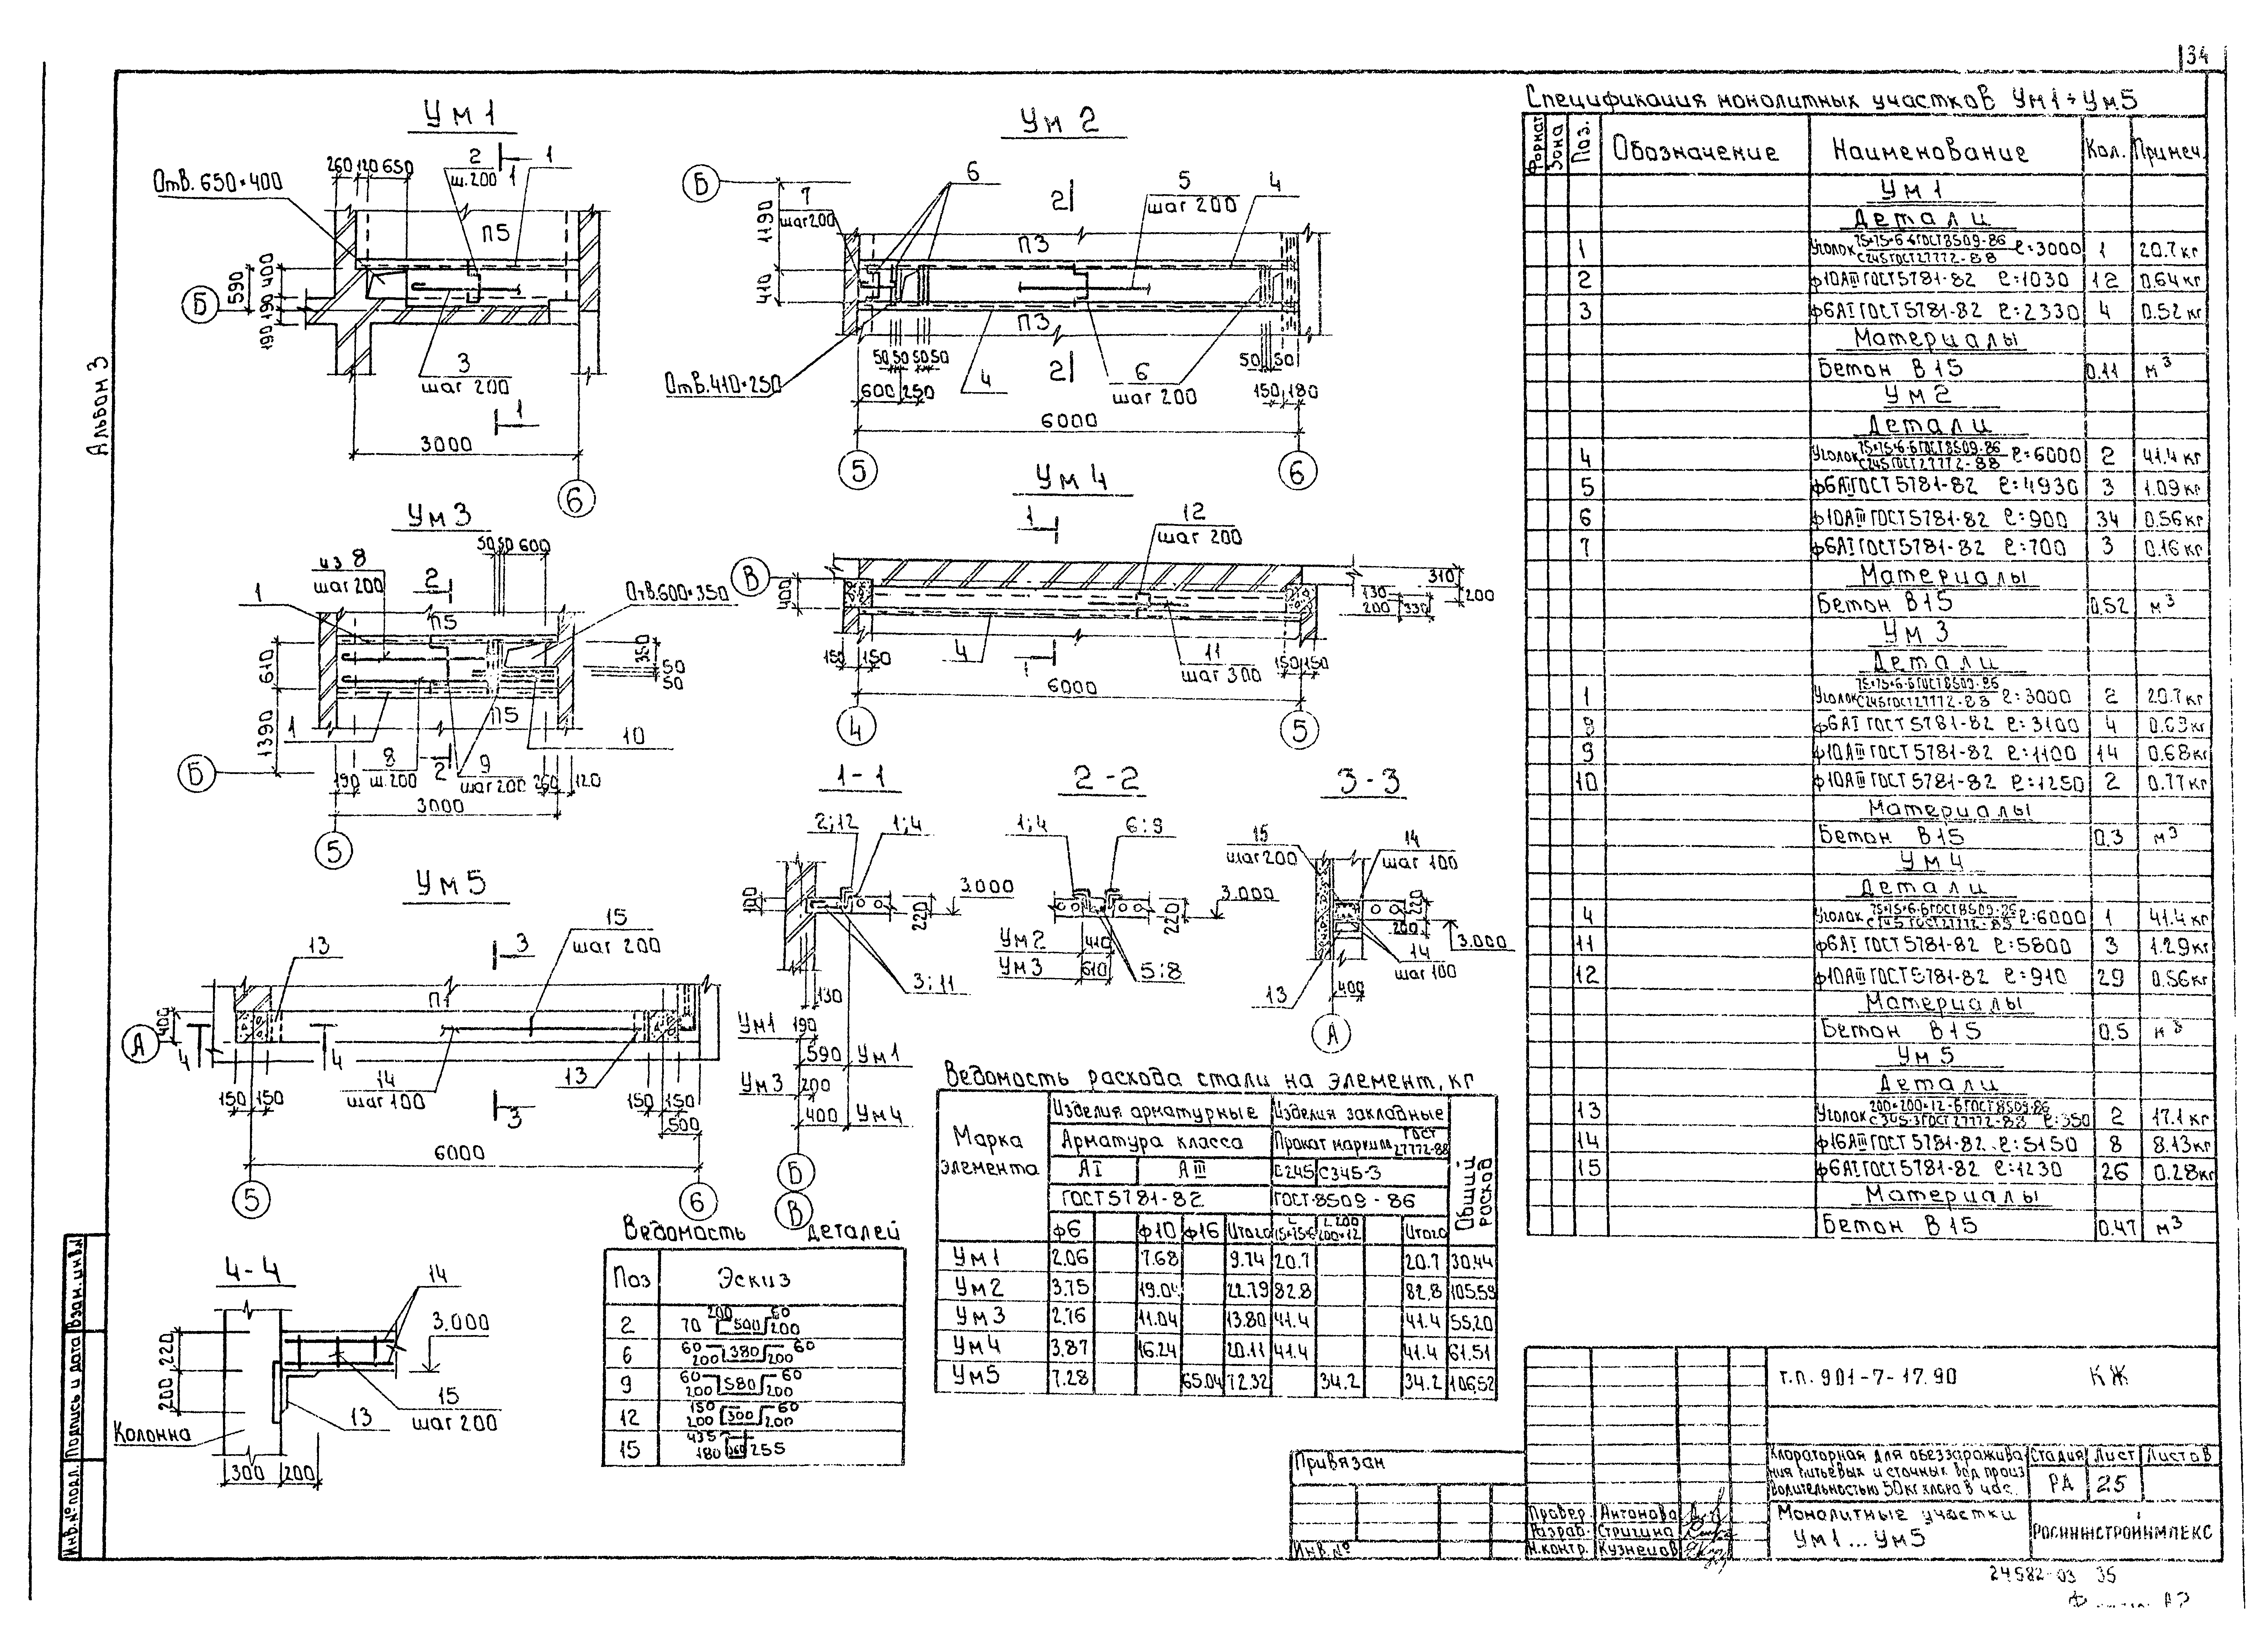 34
Альбом 3
Ум 1
260 120 650
2
ш.200
1
1
Отв. 650×400
П5
590
400
190
190
Б
3
шаг 200
1
3000
6
Ум 2
Б
7
шаг200
6
2
5
шаг 200
4
1190
410
П3
П3
50 50 50 50
Отв.410×250
600 250
4
2
6
шаг 200
50 50
150 180
6000
5
6
Ум 3
50 50 600
из 8
шаг 200
2
1
Отв.600×350
П5
610
350
50
50
1390
П5
1
10
Б
8
ш.200
2
9
шаг 200
190
260
120
3000
5
Ум 4
1
12
шаг 200
В
400
310
130
200
330
200
150 150
4
1
11
шаг 300
150 150
6000
4
5
Ум 5
13
3
15
шаг 200
П1
А
400
4
4
14
шаг 100
13
3
150 150
150 150
500
6000
5
6
1-1
2;12
1;4
100
3.000
220
3;11
130
Ум1
190
590
Ум1
Ум3
200
400
Ум4
Б
В
2-2
1;4
6;9
3.000
220
Ум2
410
Ум3
610
5;8
3-3
15
шаг200
14
шаг 100
3.000
220
200
3.000
14
шаг100
13
400
А
4-4
14
3.000
220
200
15
шаг 200
13
Колонна
300 200
Ведомость деталей
Поз Эскиз
2 70 200 500 60 200
6 60 200 380 200 60
9 60 200 580 200 60
12 150 200 300 200 60
15 435 180 255
Ведомость расхода стали на элемент, кг
Марка элемента
Изделия арматурные Изделия закладные
Общий расход
Арматура класса Прокат марки ГОСТ 27772-88
АI АIII С245 С345-3
ГОСТ 5781-82 ГОСТ 8509-86
ф6 ф10 ф16 Итого L 75×75×6 L 200 200×12 Итого
Ум1 2.06 7.68 9.74 20.7 20.7 30.44
Ум2 3.75 19.04 22.79 82.8 82.8 105.59
Ум3 2.76 11.04 13.80 41.4 41.4 55.20
Ум4 3.87 16.24 20.11 41.4 41.4 61.51
Ум5 7.28 65.04 72.32 34.2 34.2 106.52
Спецификация монолитных участков Ум1÷Ум5
Формат Зона Поз. Обозначение Наименование Кол. Примеч.
Ум 1
Детали
1 Уголок 75×75×6-Б ГОСТ 8509-86 С245 ГОСТ 27772-88 ℓ=3000 1 20.7кг
2 ф10АIII ГОСТ 5781-82 ℓ=1030 12 0.64кг
3 ф6АI ГОСТ 5781-82 ℓ=2330 4 0.52кг
Материалы
Бетон В15 0.11 м3
Ум 2
Детали
4 Уголок 75×75×6-Б ГОСТ 8509-86 С245 ГОСТ 27772-88 ℓ=6000 2 41.4кг
5 ф6АI ГОСТ 5781-82 ℓ=4930 3 1.09кг
6 ф10АIII ГОСТ 5781-82 ℓ=900 34 0.56кг
7 ф6АI ГОСТ 5781-82 ℓ=700 3 0.16кг
Материалы
Бетон В15 0.52 м3
Ум 3
Детали
1 Уголок 75×75×6-Б ГОСТ 8509-86 С245 ГОСТ 27772-88 ℓ=3000 2 20.7кг
8 ф6АI ГОСТ 5781-82 ℓ=3100 4 0.69кг
9 ф10АIII ГОСТ 5781-82 ℓ=1100 14 0.68кг
10 ф10АIII ГОСТ 5781-82 ℓ=1250 2 0.77кг
Материалы
Бетон В15 0.3 м3
Ум 4
Детали
4 Уголок 75×75×6-Б ГОСТ 8509-86 С245 ГОСТ 27772-88 ℓ=6000 1 41.4кг
11 ф6АI ГОСТ 5781-82 ℓ=5800 3 1.29кг
12 ф10АIII ГОСТ 5781-82 ℓ=910 29 0.56кг
Материалы
Бетон В15 0.5 м3
Ум 5
Детали
13 Уголок 200×200×12-Б ГОСТ 8509-86 С345-3 ГОСТ 27772-88 ℓ=350 2 17.1кг
14 ф16АIII ГОСТ 5781-82 ℓ=5150 8 8.13кг
15 ф6АI ГОСТ 5781-82 ℓ=1230 26 0.28кг
Материалы
Бетон В15 0.47 м3
т.п. 901-7-17.90 КЖ
Хлораторная для обеззаражива
ния питьевых и сточных вод произ
водительностью 50кг хлора в час.
Стадия Лист Листов
РД 25
Монолитные участки
Ум1...Ум5
РОСИНЖСТРОЙКОМПЛЕКС
Привязан
Инв.№
Провер. Антонова
Разраб. Стригина
Н.контр. Кузнецов
Инв.№ подл. Подпись и дата Взам.инв.№
24582-03 35